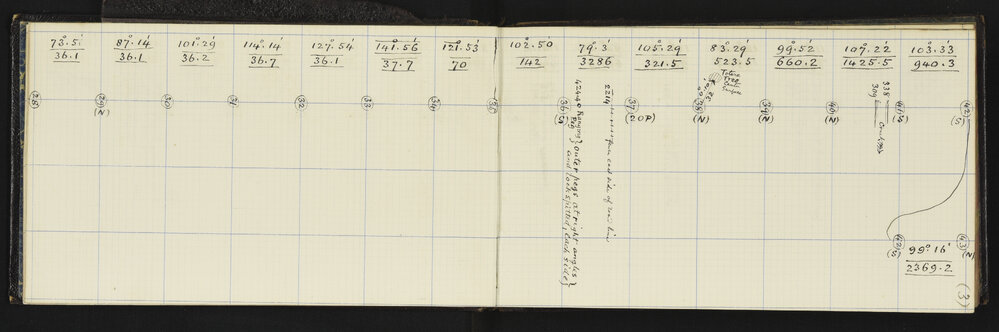 73°.5'
36.1
87°.14'
36.1
101°.29'
36.2
114°.14'
36.7
127°.54'
36.1
141°.56'
37.7
121°.53'
70
102°.50'
142
79°.3'
3286
105°.29'
321.5
83°.29'
523.5
99°.52'
660.2
107°.22'
1425.5
103°.33'
940.3
28
29
(N)
30
31
32
33
34
35
36
(S)
37
(20P)
38
(N)
39
(N)
40
(N)
41
(S)
42
(S)
4244.0 Ranging Rod
{outer pegs at right angles}
{and lockspitted, each side}
2214
east side of
338
309
42
(S)
43
(N)
99°.16'
2369.2
(3)